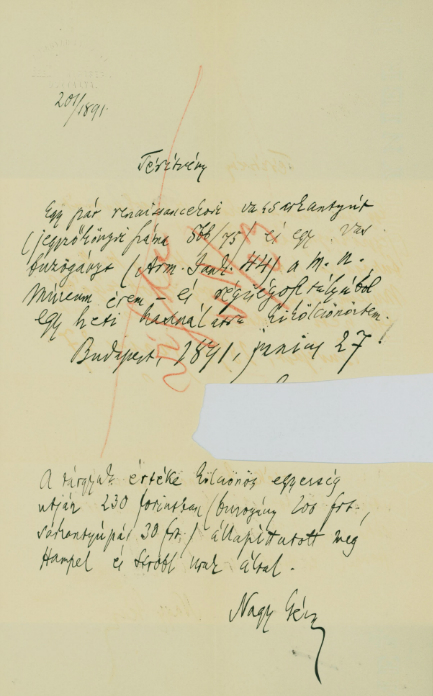 201/1891.
Térítvény
Egy pár renaissancekori vassarkantyút
(jegyzőkönyvi száma 866/75) és egy vas
buzogányt (Arm. Inv. 44) a M. N.
Múzeum érem- és régiségosztályából
egy heti használatra kikölcsönöztem.
Budapest, 1891, június 27
A tárgyak értéke kölcsönös egyezség
útján 230 forintban (buzogány 200 frt.,
sarkantyúpár 30 frt.) állapíttatott meg
Hampel és Strobl urak által.
Nagy Géza